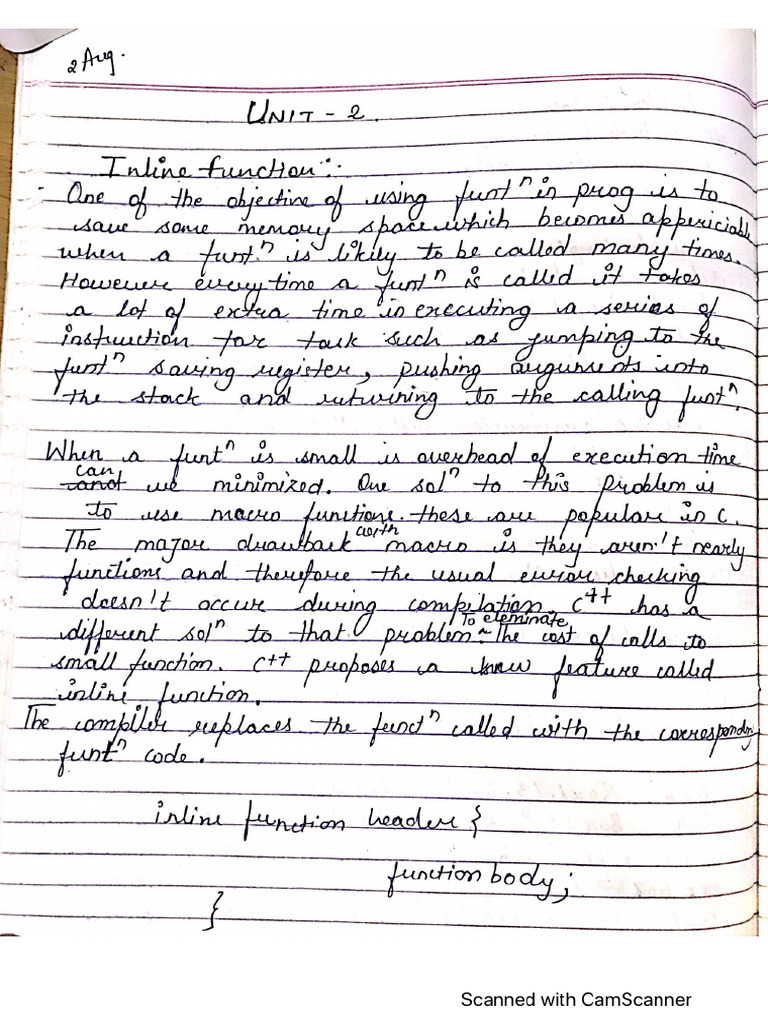 2 Aug.
UNIT - 2.
Inline function:-
One of the objective of using funtⁿ in prog is to
save some memory space which becomes appericiable
when a funtⁿ is likely to be called many times.
However every time a funtⁿ is called it takes
a lot of extra time in executing a series of
instruction for task such as jumping to the
funtⁿ saving register, pushing arguments into
the stack and returning to the calling funtⁿ.
When a funtⁿ is small is overhead of execution time
can
we minimized. One solⁿ to this problem is
to use macro functions. these are popular in C.
The major drawback with macro is they aren't nearly
functions and therefore the usual error checking
doesn't occur during compilation. C++ has a
different solⁿ to that problem To eleminate the cost of calls to
small function. C++ proposes a new feature called
inline function.
The compiler replaces the functⁿ called with the correspondin
funtⁿ code.
inline function header {
function body;
}
Scanned with CamScanner